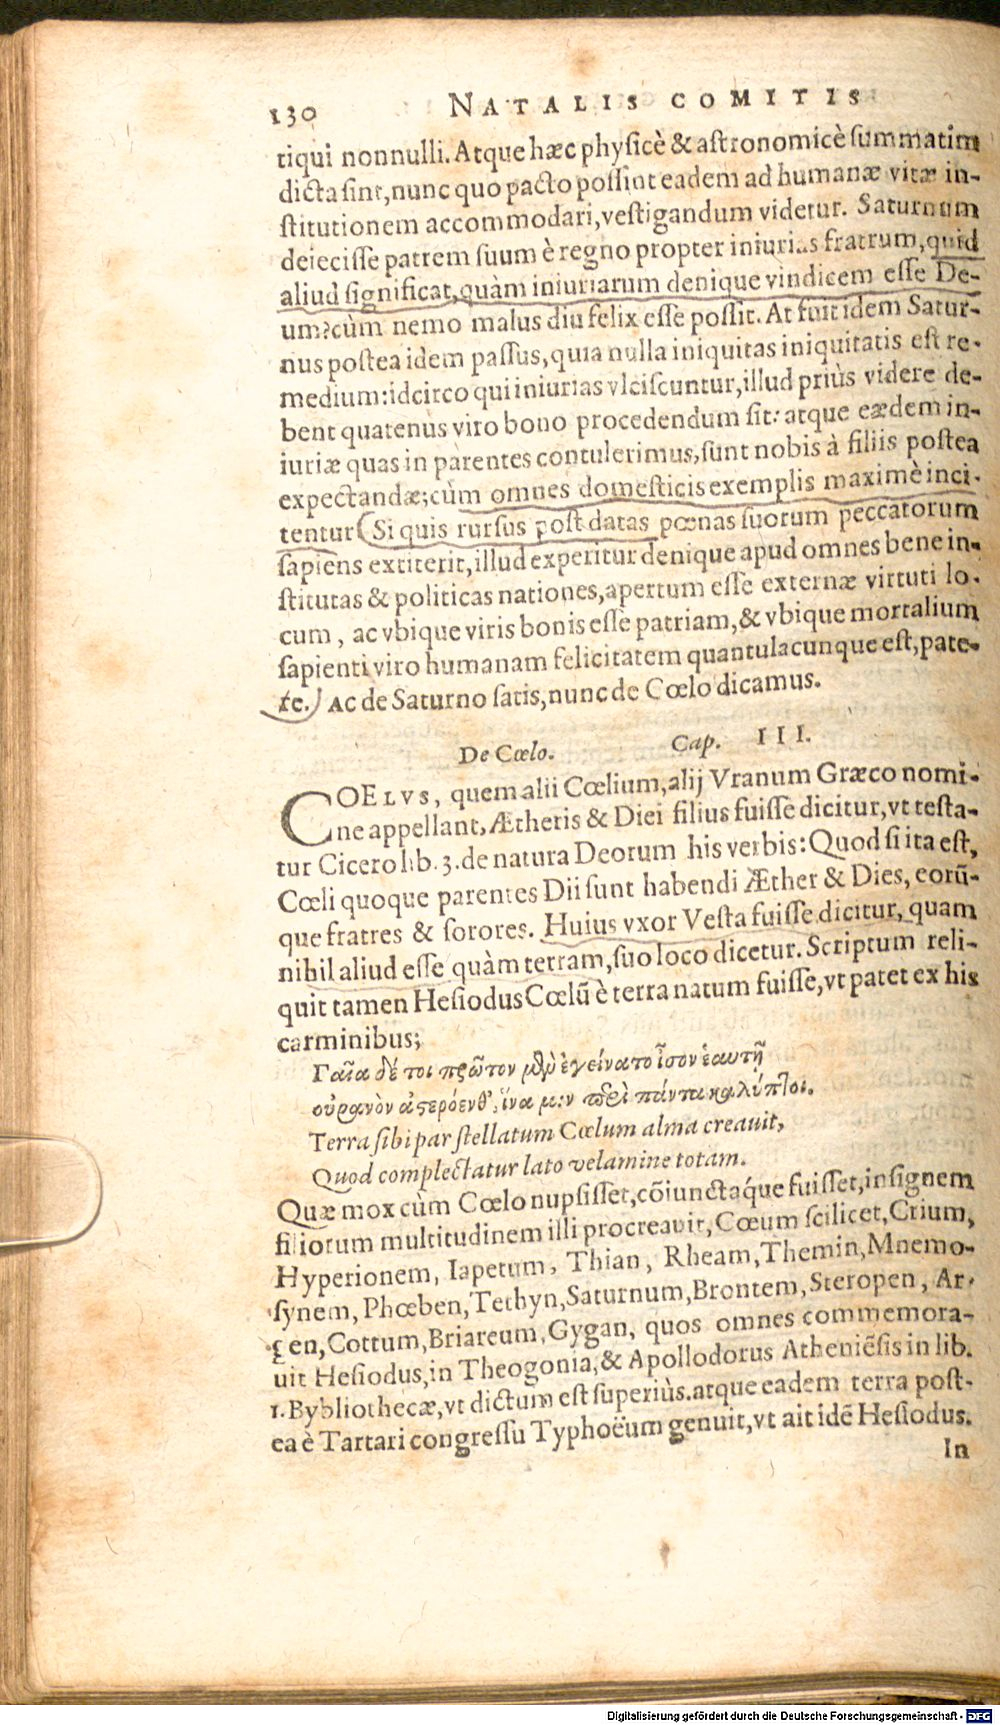 130 NATALIS COMITIS
tiqui nonnulli. Atque hæc physicè & astronomicè summatim
dicta sint, nunc quo pacto possint eadem ad humanæ vitæ in-
stitutionem accommodari, vestigandum videtur. Saturnum
deiecisse patrem suum è regno propter iniurias fratrum, quid
aliud significat, quàm iniuriarum denique vindicem esse De-
um? cùm nemo malus diu felix esse possit. At fuit idem Satur-
nus postea idem passus, quia nulla iniquitas iniquitatis est re-
medium: idcirco qui iniurias vlciscuntur, illud priùs videre de-
bent quatenus viro bono procedendum sit: atque eædem in-
iuriæ quas in parentes contulerimus, sunt nobis à filiis postea
expectandæ; cùm omnes domesticis exemplis maximè inci-
tentur. Si quis rursus post datas pœnas suorum peccatorum
sapiens extiterit, illud experitur denique apud omnes bene in-
stitutas & politicas nationes, apertum esse externæ virtuti lo-
cum, ac vbique viris bonis esse patriam, & vbique mortalium
sapienti viro humanam felicitatem quantulacunque est, pate-
te. Ac de Saturno satis, nunc de Cœlo dicamus.
De Cœlo. Cap. III.
COELVS, quem alii Cœlium, alij Vranum Græco nomi-
ne appellant, Ætheris & Diei filius fuisse dicitur, vt testa-
tur Cicero lib. 3. de natura Deorum his verbis: Quod si ita est,
Cœli quoque parentes Dii sunt habendi Æther & Dies, eorū-
que fratres & sorores. Huius vxor Vesta fuisse dicitur, quam
nihil aliud esse quàm terram, suo loco dicetur. Scriptum reli-
quit tamen Hesiodus Cœlū è terra natum fuisse, vt patet ex his
carminibus;
Γαῖα δέ τοι πρῶτον μὲν ἐγείνατο ἶσον ἑαυτῇ
οὐρανὸν ἀστερόενθ', ἵνα μιν περὶ πάντα καλύπτοι.
Terra sibi par stellatum Cœlum alma creauit,
Quod complectatur lato velamine totam.
Quæ mox cùm Cœlo nupsisset, cōiunctáque fuisset, insignem
filiorum multitudinem illi procreauit, Cœum scilicet, Crium,
Hyperionem, Iapetum, Thian, Rheam, Themin, Mnemo-
synem, Phœben, Tethyn, Saturnum, Brontem, Steropen, Ar-
gen, Cottum, Briareum, Gygan, quos omnes commemora-
uit Hesiodus, in Theogonia, & Apollodorus Atheniēsis in lib.
1. Bybliothecæ, vt dictum est superiùs. atque eadem terra post-
ea è Tartari congressu Typhoëum genuit, vt ait idē Hesiodus.
In
Digitalisierung gefördert durch die Deutsche Forschungsgemeinschaft - DFG